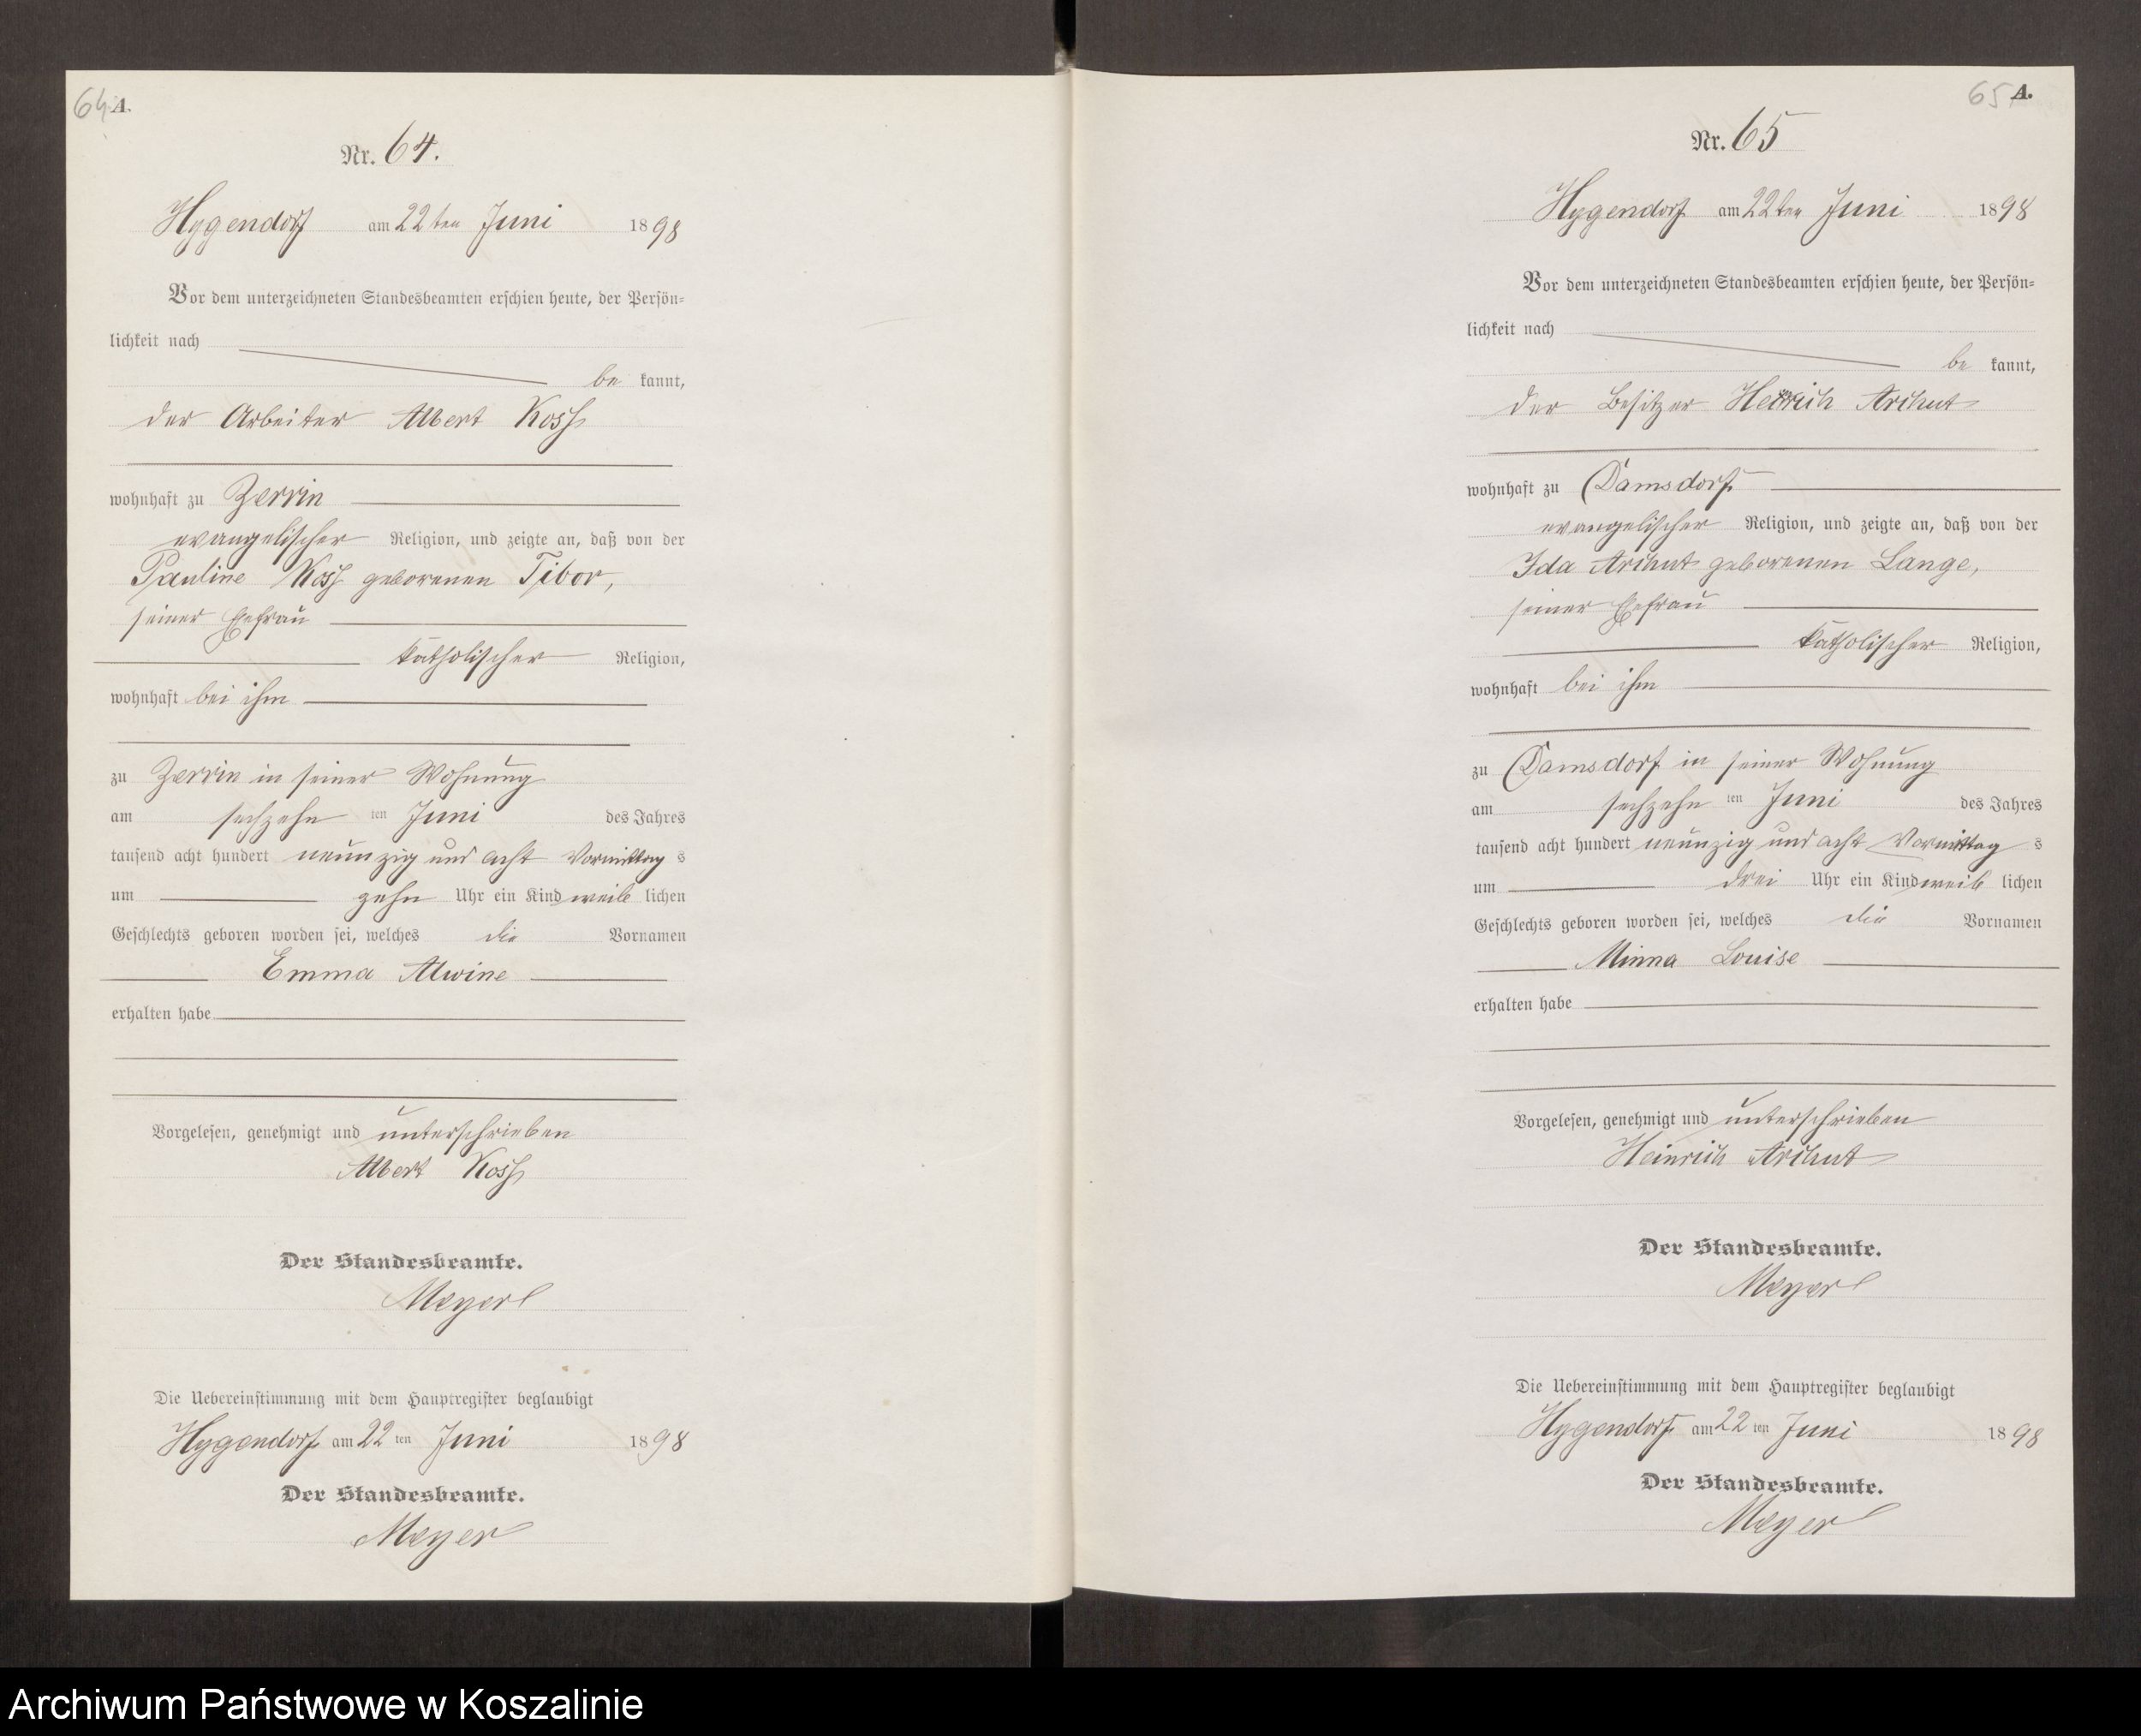 64 A.
Nr. 64.
Hygendorf am 22ten Juni 1898
Vor dem unterzeichneten Standesbeamten erschien heute, der Persön-
lichkeit nach
be kannt,
der Arbeiter Albert Koss
wohnhaft zu Zerrin
evangelischer Religion, und zeigte an, daß von der
Pauline Koss geborenen Tibor,
seiner Ehefrau
katholischer Religion,
wohnhaft bei ihm
zu Zerrin in seiner Wohnung
am sechzehn ten Juni des Jahres
tausend acht hundert neunzig und acht Vormittag s
um zehn Uhr ein Kind weib lichen
Geschlechts geboren worden sei, welches die Vornamen
Emma Alwine
erhalten habe
Vorgelesen, genehmigt und unterschrieben
Albert Koss
Der Standesbeamte.
Meyer
Die Uebereinstimmung mit dem Hauptregister beglaubigt
Hygendorf am 22 ten Juni 1898
Der Standesbeamte.
Meyer
65 A.
Nr. 65
Hygendorf am 22ten Juni 1898
Vor dem unterzeichneten Standesbeamten erschien heute, der Persön-
lichkeit nach
be kannt,
der Besitzer Heinrich Archut
wohnhaft zu Damsdorf
evangelischer Religion, und zeigte an, daß von der
Ida Archut geborenen Lange,
seiner Ehefrau
katholischer Religion,
wohnhaft bei ihm
zu Damsdorf in seiner Wohnung
am sechzehn ten Juni des Jahres
tausend acht hundert neunzig und acht Vormittag s
um drei Uhr ein Kind weib lichen
Geschlechts geboren worden sei, welches die Vornamen
Minna Louise
erhalten habe
Vorgelesen, genehmigt und unterschrieben
Heinrich Archut
Der Standesbeamte.
Meyer
Die Uebereinstimmung mit dem Hauptregister beglaubigt
Hygendorf am 22 ten Juni 1898
Der Standesbeamte.
Meyer
Archiwum Państwowe w Koszalinie